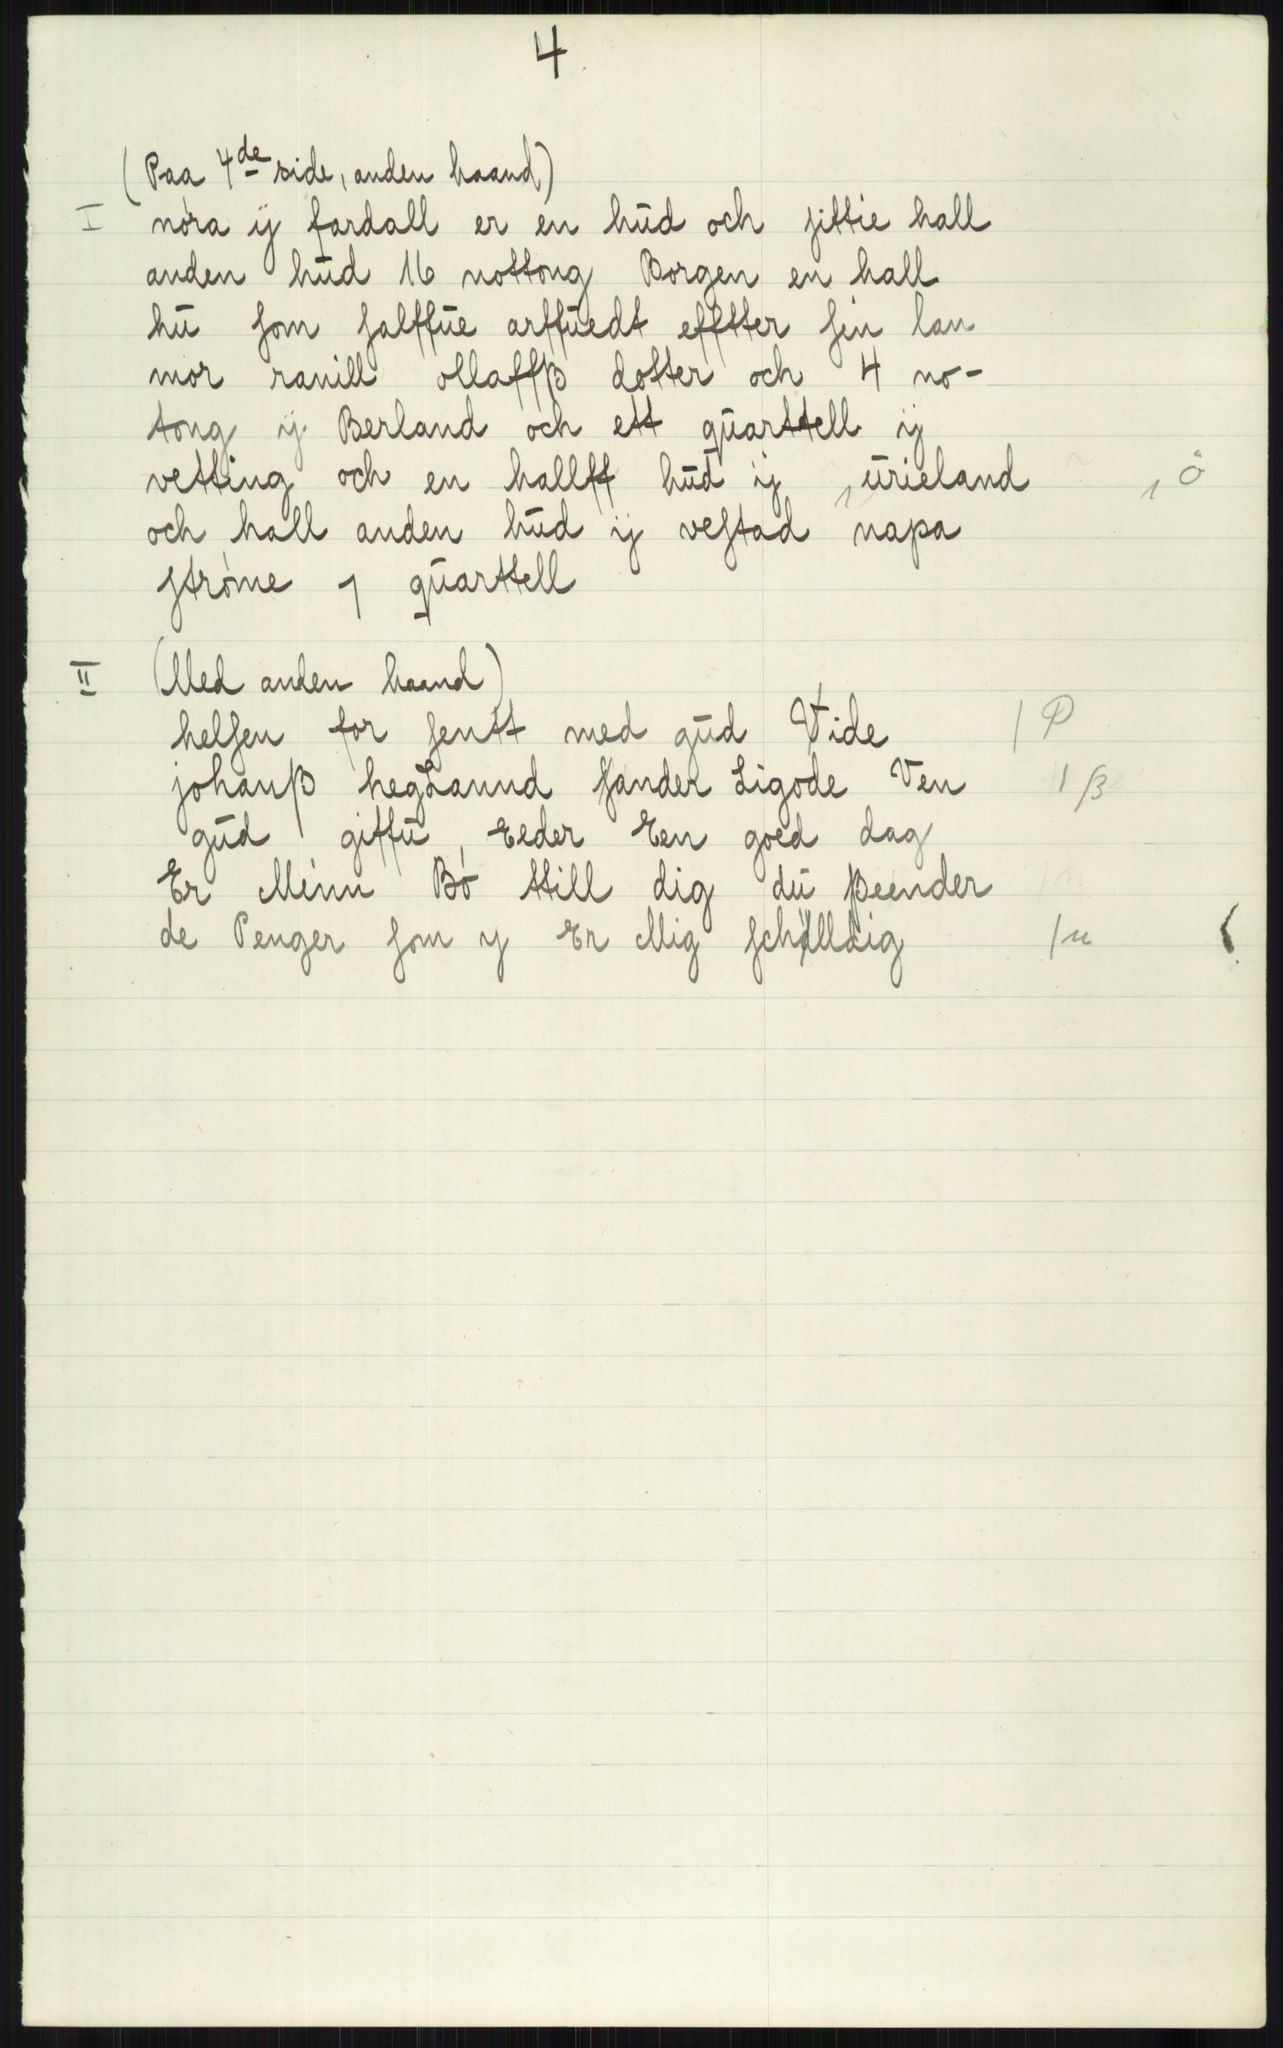 4
(Paa 4de side, anden haand)
I nóra ij fardall er en hud och sittie hall
anden hud 16 nottong Borgen en hall
hu som salffue arffuedt efftter sin lan
mor ranill ollaffß dotter och 4 no-
tong ij Berland och ett quarttell ij
vetting och en hallff hud ij urieland , ö
och hall anden hud ij vestad napa
stróme 1 quarttell
II (Med anden haand)
helsen for sentt med gud Vide | P
johanß hegLannd sander Ligode Ven | ß
gud giffu Eeder Een goed dag
Er Minn Bó ttill dig du seender
de Penger som y Er Mig schlldig | u